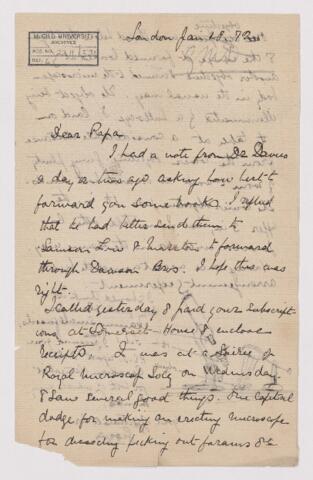 McGILL UNIVERSITY
ARCHIVES
ACC. NO.
REF.
London Jan
Dear Papa
I had a note from Dr Davies
a day or two ago asking how best to
forward you some books. I replied
that he had better send them to
Sampson Low & Marston to forward
through Dawson Bros. I hope this was
right.
I called yesterday & paid your subscript-
ions at Somerset House & enclose
receipts. I was at a Soiree of
Royal Microscop Socy on Wednesday
& saw several good things. One capital
dodge for making an erecting microscope
for dissecting picking out forams &c